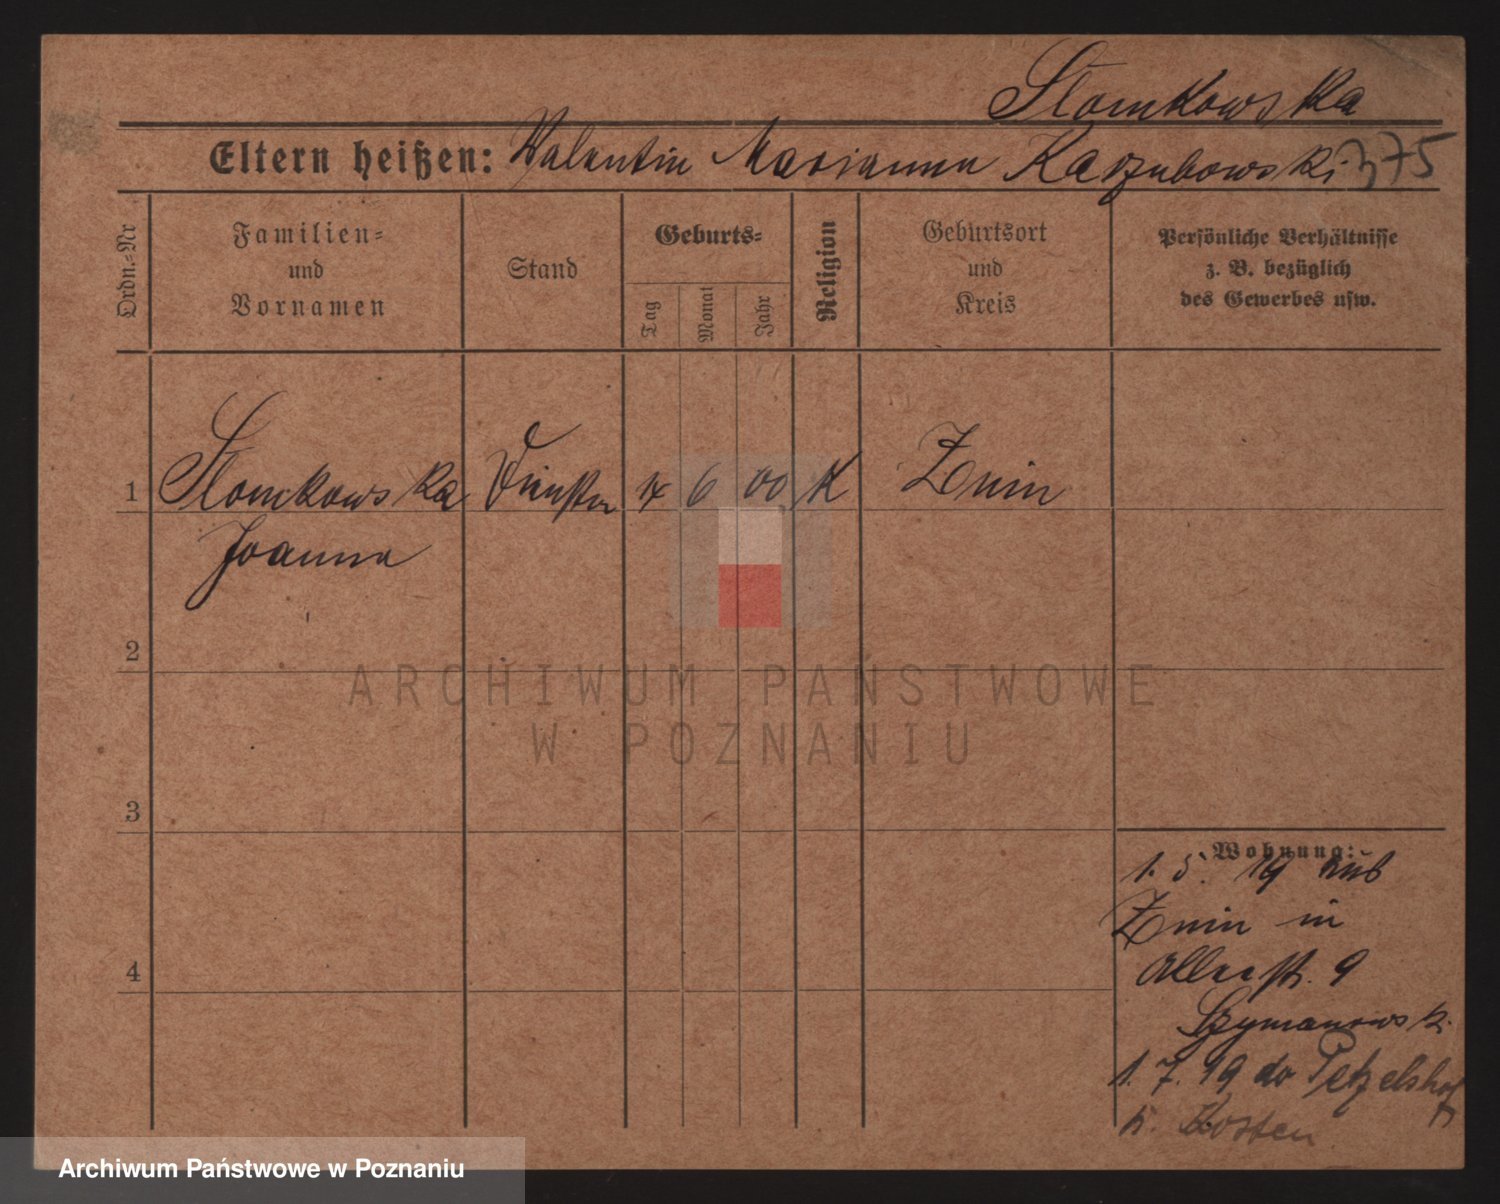 Slomkowska
Eltern heißen: Valentin Marianna Kaczubowski 375
Ordn.-Nr
Familien-
und
Vornamen
Stand
Geburts-
Tag
Monat
Jahr
Religion
Geburtsort
und
Kreis
Persönliche Verhältnisse
z. B. bezüglich
des Gewerbes usw.
1 Slomkowska 6 00 K Znin
Joanna
2
3
4
Wohnung:
1. 5. 19 aus
Znin in
Allerstr. 9
Szymanowski
1. 7. 19 do Petzelshof
K. Kosten
ARCHIWUM PAŃSTWOWE
W POZNANIU
Archiwum Państwowe w Poznaniu